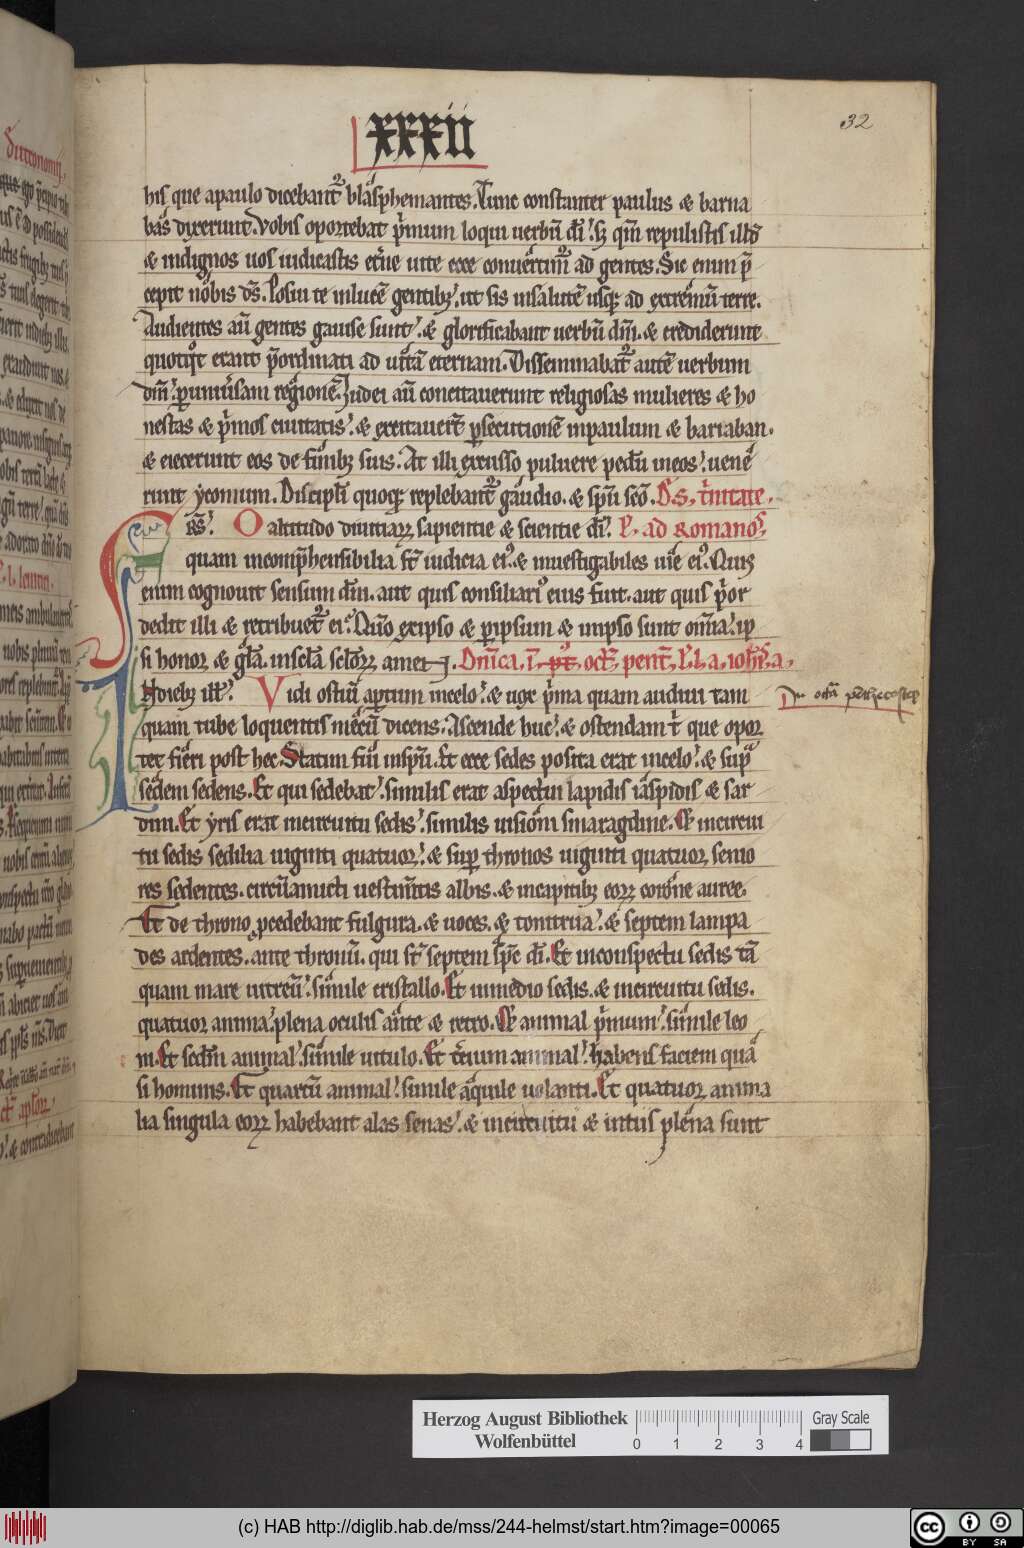 xxxii
32
his que apaulo dicebant᷑ blasphemantes. Tunc constanter paulus & barna
bas dixerunt. Vobis oportebat p̄mum loqui uerbū dī. sꝫ qm̄ repulistis illd̄
& indignos uos iudicastis et̄ne uite ecce conuertim᷒ ad gentes. Sic enim p̄
cepit nobis dn̄s. Posui te inlucē gentibꝫ. ut sis insalutē usqꝫ ad extremū terre.
Audientes aū gentes gauise sunt. & glorificabant uerbū dnī. & crediderunt
quotqt̄ erant p̄ordinati ad uitā eternam. Disseminabat᷑ autē uerbum
dnī. ꝑuniūsam regionē. Iudei aū concitauerunt religiosas mulieres & ho
nestas & p̄mos ciuitatis. & excitauer̄t ꝑsecutionē inpaulum & barnaban.
& eiecerunt eos de finibꝫ suis. At illi excusso puluere pedū ineos. uene
runt yconium. Discipli quoqꝫ replebant᷑ gaudio. & spū scō. D̄.S. t̄nitate.
Fr̄s. O altitudo diuitiaꝝ sapientie & scientie dī. L̄. ad Romanos.
quam incomp̄hensibilia st̄ iudicia ei᷒. & inuestigabiles uie ei᷒. Quis
enim cognouit sensum dn̄i. aut quis consiliari᷒ eius fuit. aut quis p̄or
dedit illi & retribuet᷑ ei. Qm̄ exipso & ꝑipsum & inipso sunt om̄ia. ip
si honor & gl̄a. inscl̄a scl̄oꝝ amen. Dn̄ica. i. pt̄. oct̄. pent̄. L̄. l. a. ioh̄is. a.
In diebꝫ ill̄. Vidi ostiū aptum incelo. & uox p̄ma quam audiui tam
Jn octā penthecostes
quam tube loquentis mecū dicens. Ascende huc. & ostendam t̄ que opor
tet fieri post hec. Statim fui inspū. Et ecce sedes posita erat incelo. & supra
sedem sedens. Et qui sedebat. similis erat aspectui lapidis iaspidis & sar
dini. Et yris erat incircuitu sedis. similis uisioni smaragdine. & incircui
tu sedis sedilia uiginti quatuor. & suꝑ thronos uiginti quatuor senio
res sedentes. circūamicti uestim̄tis albis. & incapitibꝫ eoꝝ corone auree.
Et de throno ꝓcedebant fulgura. & uoces. & tonitrua. & septem lampa
des ardentes. ante thronū. qui st̄ septem sp̄c dī. Et inconspectu sedis tā
quam mare uitreū. simile cristallo. Et inmedio sedis. & incircuitu sedis.
quatuor animā. plena oculis ante & retro. & animal p̄mum. simile leo
ni. Et secdm̄ animal. simile uitulo. Et t̄cium animal. habens faciem qua
si hominis. Et quartū animal. simile aquile uolanti. Et quatuor anima
lia singula eoꝝ habebant alas senas. & incircuitu & intus plena sunt
Herzog August Bibliothek
Wolfenbüttel
0 1 2 3 4
Gray Scale
(c) HAB http://diglib.hab.de/mss/244-helmst/start.htm?image=00065
cc BY SA